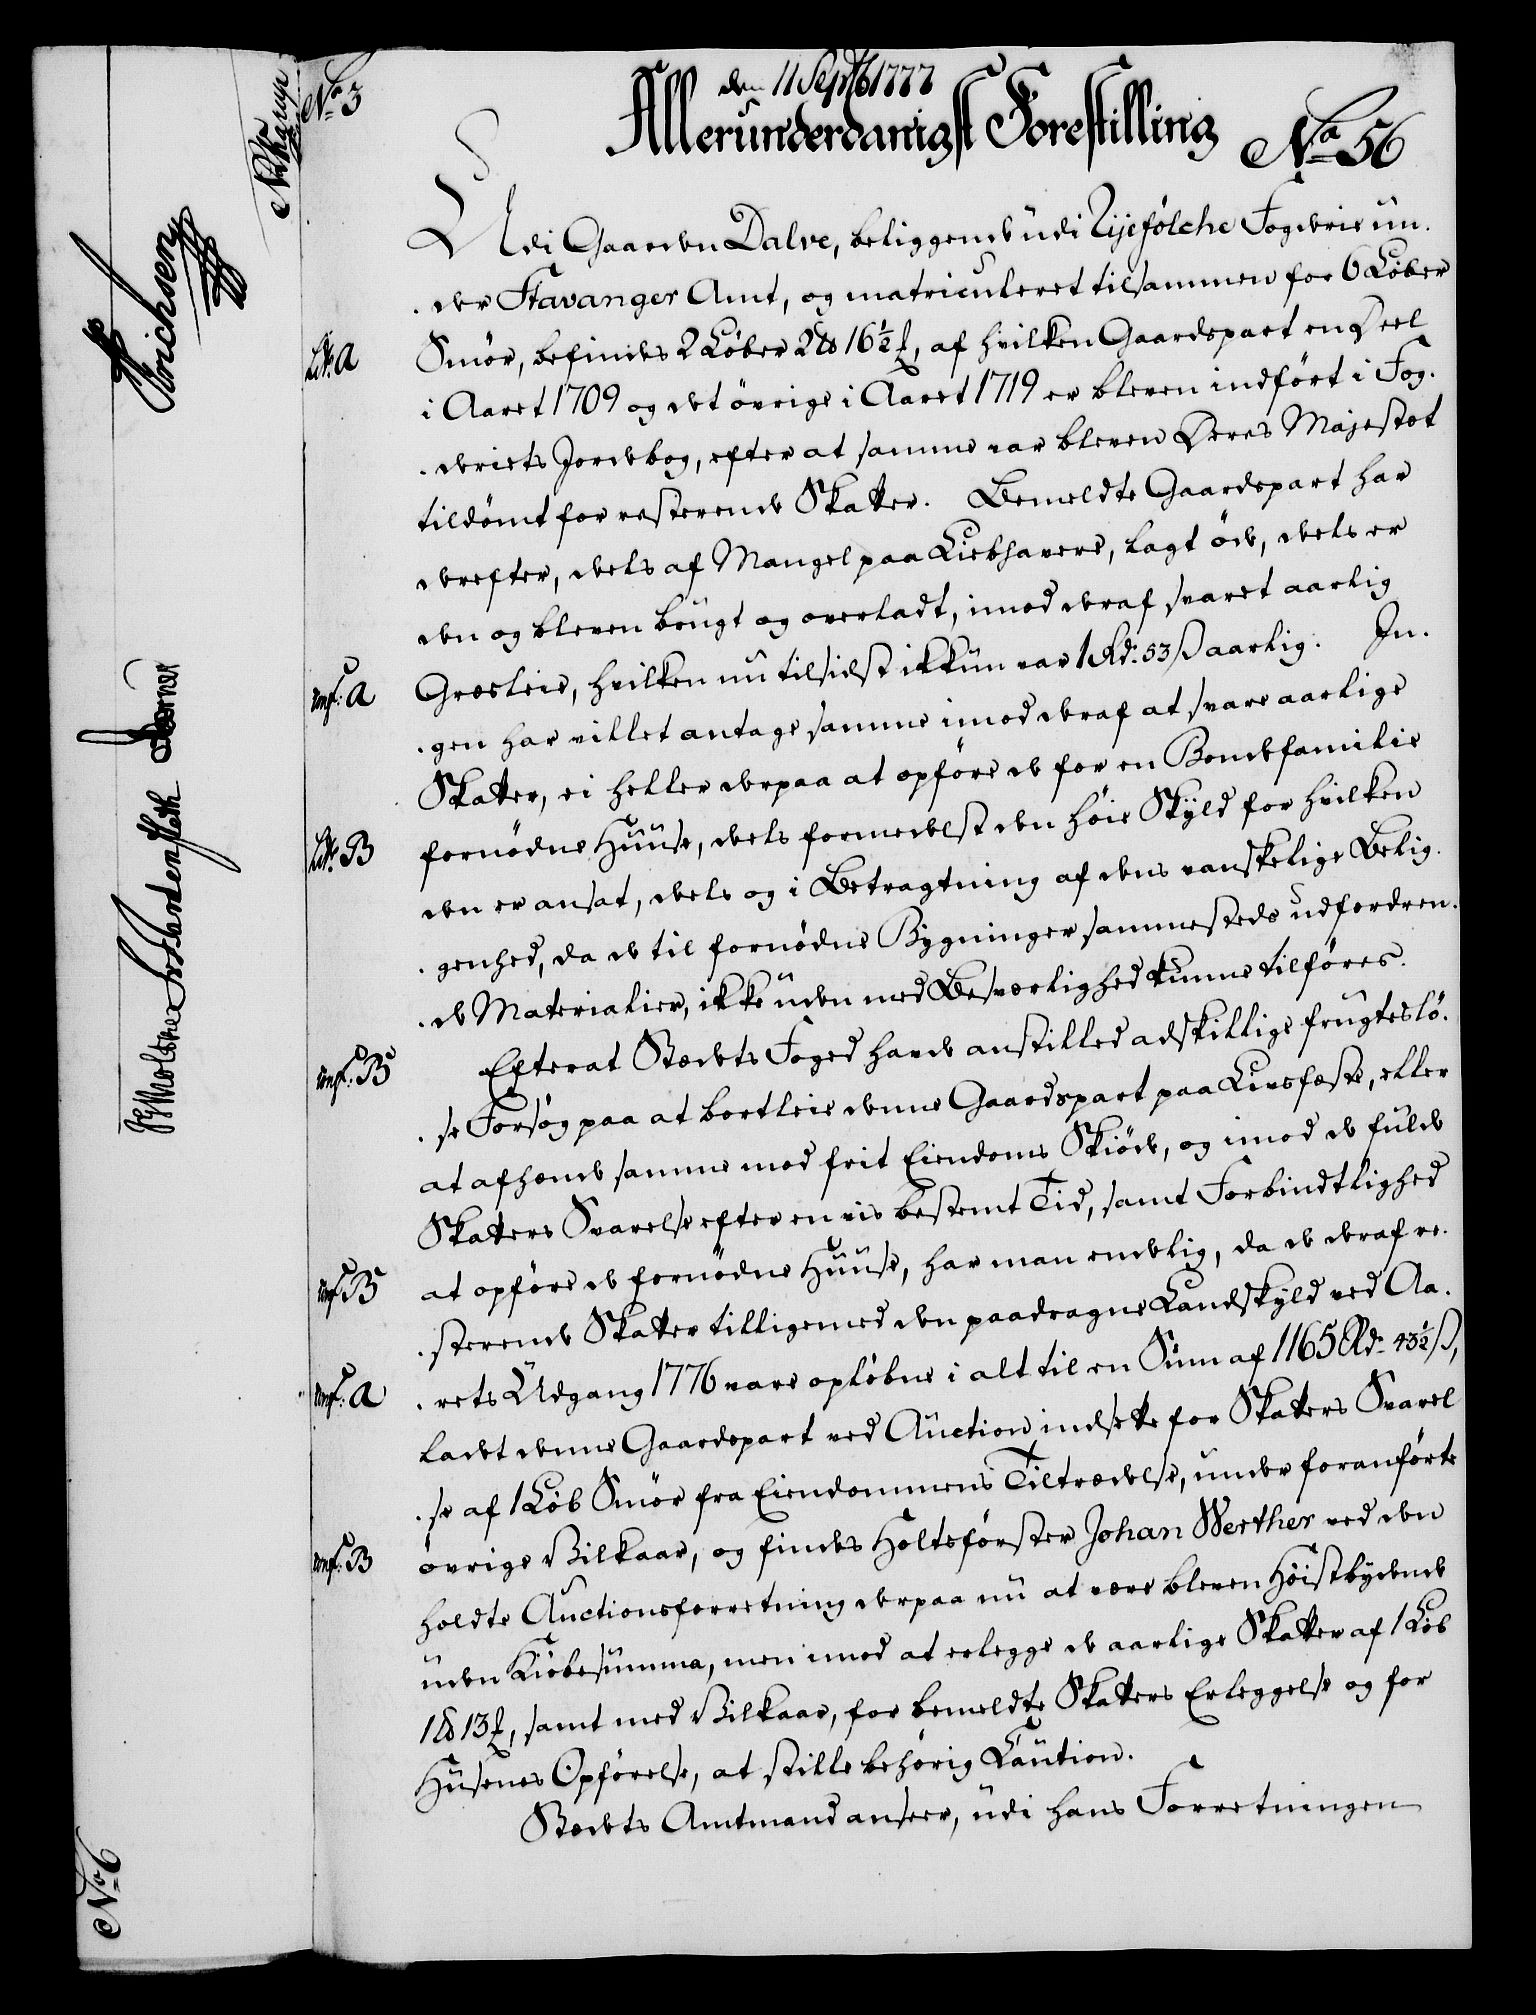 den 11 Septb 1777
No 3
Allerunderdanigst Forestilling
No 56
Udi Gaarden Dalve, beliggende udi Ryefÿlche Fogderie un-
-der Stavanger Amt, og matriculeret tilsammen for 6 Løber
Litr. A
Smör, befindes 2 Løber 2 ℔ 16½ ℔, af hvilken Gaardspart en Deel
i Aaret 1709 og det övrige i Aaret 1719 er bleven indført i Fog-
-deriets Jordebog, efter at samme var bleven Deres Majestæt
tildömt for resterende Skatter. Bemeldte Gaardspart har
derefter, deels af Mangel paa Liebhavere, lagt öde, deels er
den og bleven brugt og overladt, imod deraf svaret aarlig
conf: A
Græsleie, hvilken nu tilsidst ikkun var 1 Rd: 53 ß aarlig. In-
-gen har villet antage samme imod deraf at svare aarlige
Skatter, ei heller derpaa at opföre de for en Bondefamilie
Litr. B
fornödne Huuse, deels formedelst den höie Skyld for hvilken
den er ansat, deels og i Betragtning af dens vanskelige Belig-
-genhed, da de til fornödne Bygninger sammesteds udfordren-
-de Materialier, ikke uden med Besværlighed kunne tilföres.
conf. B
Efterat Stedets Foged havde anstilled adskillige frugteslö-
-se Forsög paa at bortleie denne Gaardspart paa Livsfæste, eller
at afhænde samme mod frit Eiendoms Skiöde, og imod de fulde
Skatters Svarelse efter en vis bestemt Tid, samt Forbindtlighed
conf. B
at opföre de fornödne Huuse, har man endelig, da de deraf re-
-sterende Skatter tilligemed den paadragne Landskyld ved Aa-
conf. A
-rets Udgang 1776 vare opløbne i alt til en Sum af 1165 Rd. 43½ ß,
ladet denne Gaardspart ved Auction indsætte for Skatters Svarel
-se af 1 Løb Smör fra Eiendommens Tiltrædelse, under foranførte
conf. B
övrige Vilkaar, og findes Holtsförster Johan Werther ved den
holdte Auctionsforretning derpaa nu at være bleven Höistbydende
uden Kiöbesumma, men imod at erlegge de aarlige Skatter af 1 Løb
1 ℔ 13 ℔, samt med Vilkaar, for bemeldte Skatters Erleggelse og for
Husenes Opförelse, at stille behörig Caution.
Stedets Amtmand anseer, udi hans Forretningen
Erichsen
No 6